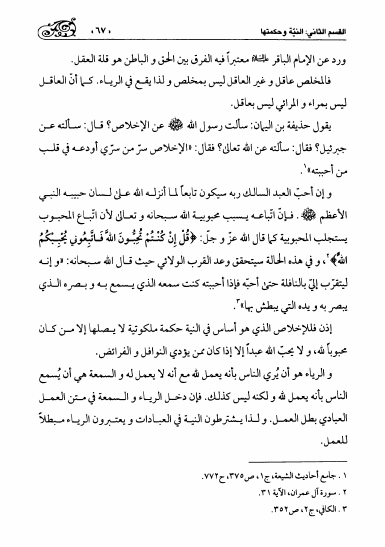 القسم الثاني: النيّة وحكمتها
﴿٦٧﴾
ورد عن الإمام الباقر معتبراً فيه الفرق بين الحق و الباطن هو قلة العقل.
فالمخلص عاقل و غير العاقل ليس بمخلص و لذا يقع في الرياء. كما أنّ العاقل
ليس بمراء و المرائي ليس بعاقل.
يقول حذيفة بن اليمان: سألت رسول الله ﷺ عن الإخلاص؟ قال: سألته عن
جبرئيل؟ فقال: سألته عن الله تعالى؟ فقال: «الإخلاص سرّ من سرّي أودعه في قلب
من أحببته»١.
و إن أحبّ العبد السالك ربه سيكون تابعاً لما أنزله الله على لسان حبيبه النبي
الأعظم ﷺ. فإنّ اتّباعه يسبب محبوبية الله سبحانه و تعالى لأن اتّباع المحبوب
يستجلب المحبوبية كما قال الله عزّ و جلّ: ﴿قُلْ إِنْ كُنْتُمْ تُحِبُّونَ اللهَ فَاتَّبِعُونِي يُحْبِبْكُمُ
اللهُ﴾٢، و في هذه الحالة سيتحقق وعد القرب الولائي حيث قال الله سبحانه: «و إنه
ليتقرّب إليّ بالنافلة حتى أحبّه فإذا أحببته كنت سمعه الذي يسمع به و بصره الذي
يبصر به و يده التي يبطش بها»٣.
إذن فللإخلاص الذي هو أساس في النية حكمة ملكوتية لا يصلها إلا من كان
محبوباً لله، و لا يحبّ الله عبداً إلا إذا كان ممن يؤدي النوافل و الفرائض.
و الرياء هو أن يُري الناس بأنه يعمل لله مع أنه لا يعمل له و السمعة هي أن يُسمع
الناس بأنه يعمل لله و لكنه ليس كذلك. فإن دخل الرياء و السمعة في متن العمل
العبادي بطل العمل. و لذا يشترطون النية في العبادات و يعتبرون الرياء مبطلاً
للعمل.
١ . جامع أحاديث الشيعة، ج١، ص٣٧٥، ح٧٧٢.
٢ . سورة آل عمران، الآية ٣١.
٣ . الكافي، ج٢، ص٣٥٢.